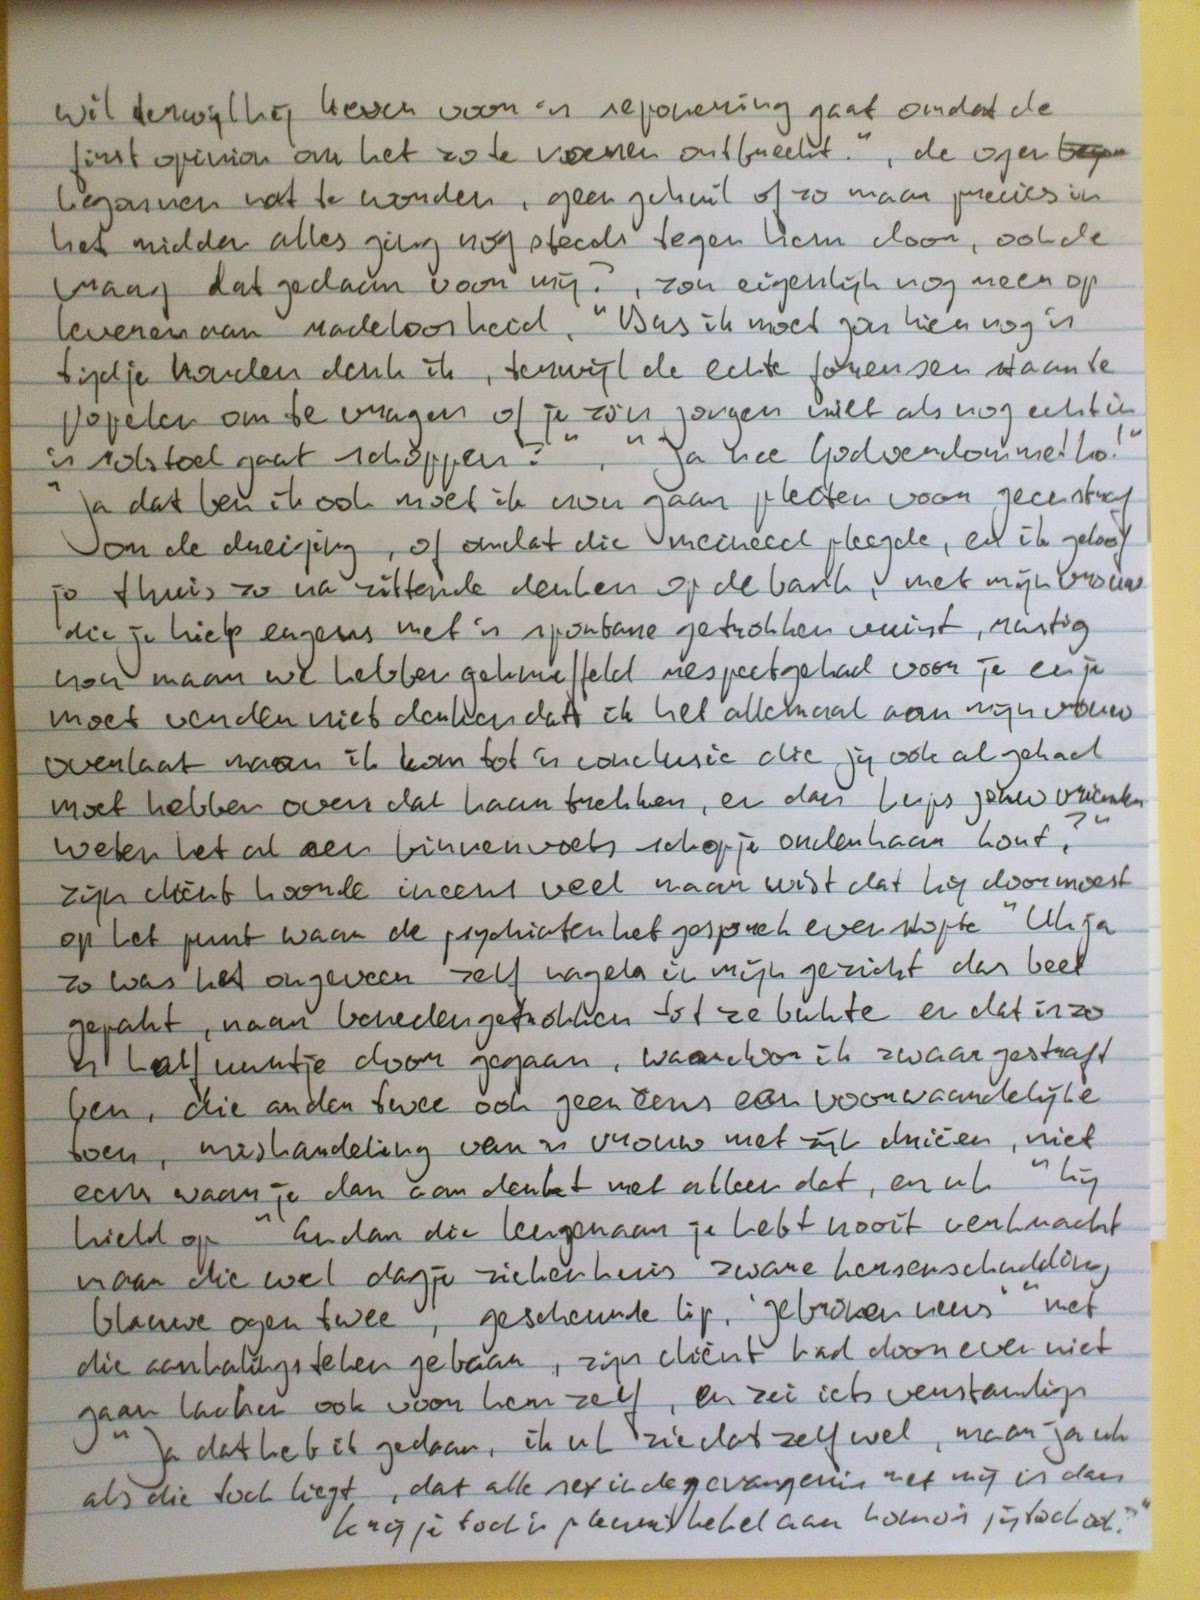 wil terwijl hij keren voor 'n reponering gaat omdat de
first opinion om het zo te noemen ontbreekt.", de ogen
begonnen nat te worden, geen gehuil of zo maar precies in
het midden alles ging nog steeds tegen hem door, ook de
vraag dat gedaan voor mij?, zou eigenlijk nog meer op
leveren aan radeloosheid. "Dus ik moet jou hier nog 'n
tijdje houden denk ik, terwijl de echte forensen staan te
popelen om te vragen of je zo'n jongen wilt als nog echt in
'n rolstoel gaat schoppen?", "Ja nee Godverdomme!ho!"
"Ja dat ben ik ook moet ik nou gaan pleiten voor geen straf
om de dreiging, of omdat die meineed pleegde, en ik geloof
jo thuis zo na zittende denken op de bank, met mijn vrouw
die je hielp ergens met 'n spontane getrokken vuist, rustig
nou maar we hebben geknuffeld respect gehad voor je en je
moet verder niet denken dat ik het allemaal aan mijn vrouw
overlaat maar ik kom tot 'n conclusie die jij ook al gehad
moet hebben over dat haar trekken, en dan jouw vrienden
weten het al een binnenvoets schopje onderhaar kont?"
zijn cliënt hoorde ineens veel maar wist dat hij door moest
op het punt waar de psychiater het gesprek even stopte "Uh ja
zo was het ongeveer zelf nagels in mijn gezicht dan beet
gepakt, naar beneden getrokken tot ze bukte en dat is zo
'n half uurtje door gegaan, waarvoor ik zwaar gestraft
ben, die ander twee ook geen eens een voorwaardelijke
toen, mishandeling van 'n vrouw met z'n drieën, niet
eens waar je dan aan denkt met alleen dat, en uh " hij
hield op "En dan die leugenaar je hebt nooit verkracht
maar die wel dagje ziekenhuis zware hersenschudding
blauwe ogen twee, gescheurde lip, 'gebroken neus' " met
die aanhalingsteken gebaar, zijn cliënt had door even niet
gaan lachen ook voor hem zelf, en zei iets verstandigs
"Ja dat heb ik gedaan, ik uh zie dat zelf wel, maar ja uh
als die toch liegt, dat alle sex in de gevangenis met mij is dan
krijg je toch 'n hekel aan homo's jij toch ook?"